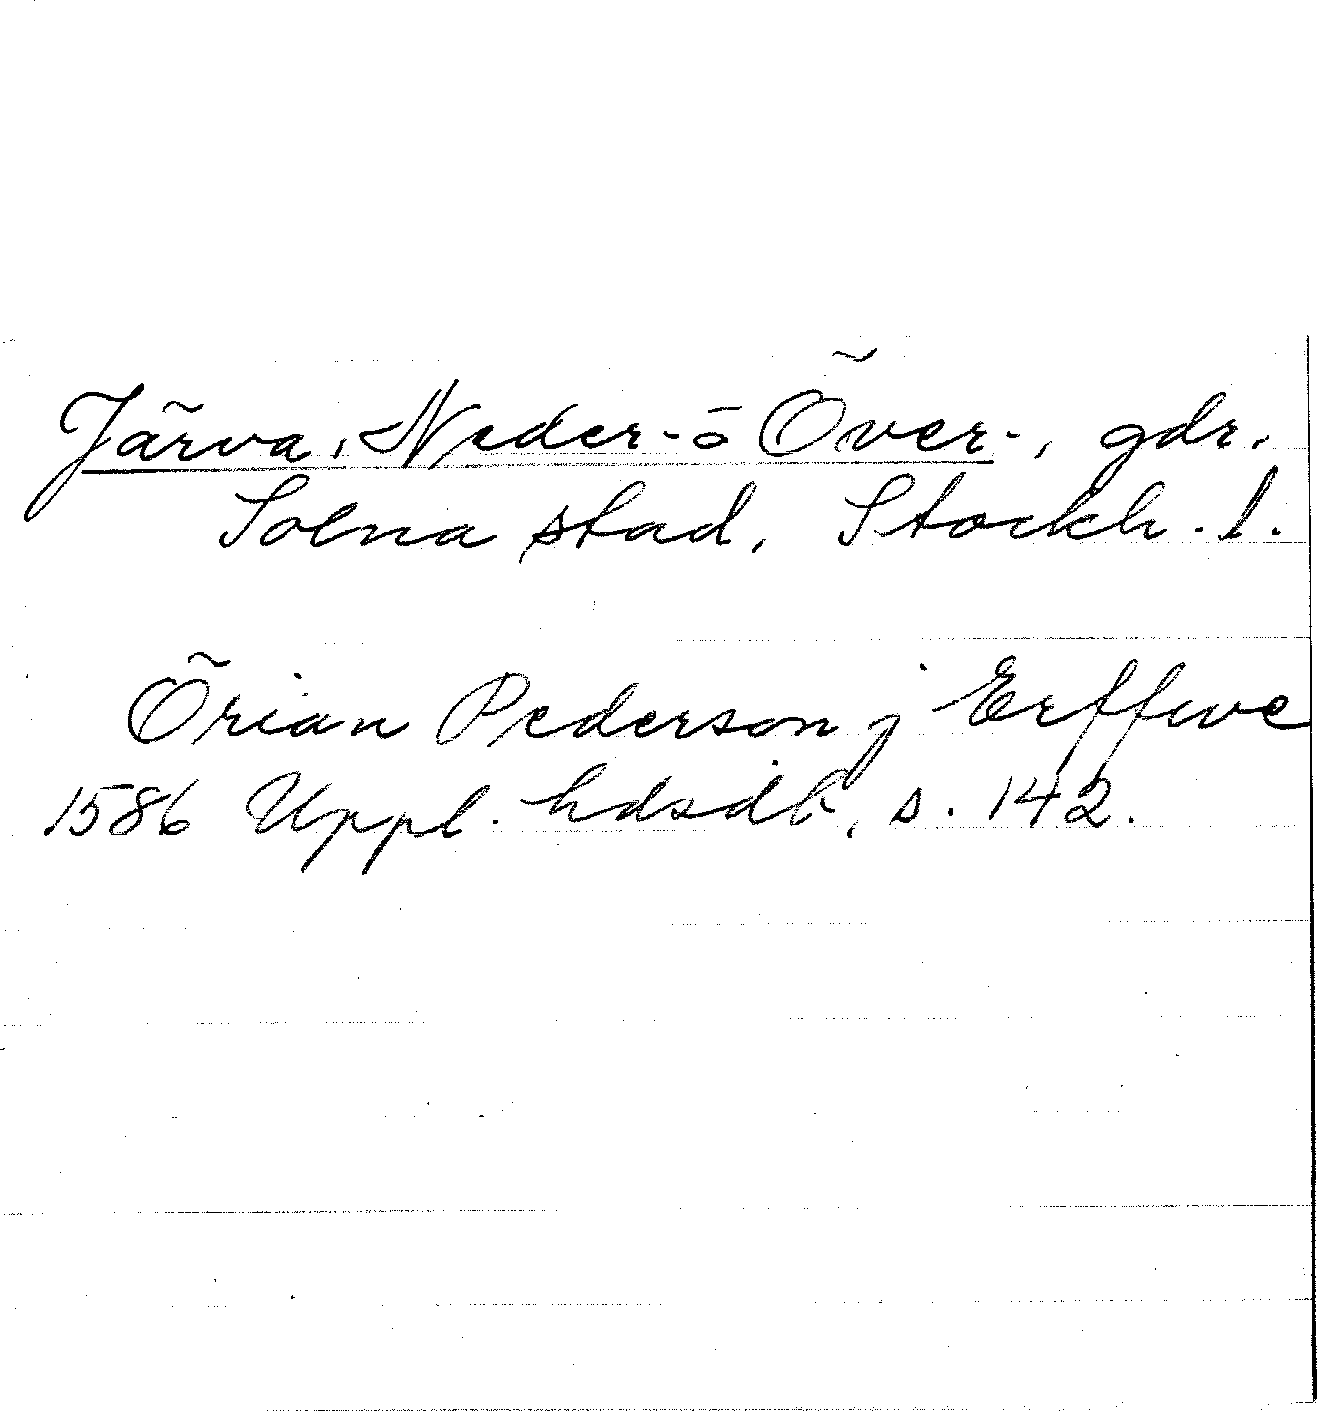 Järva, Neder- o Över-, gdr.
Solna stad, Stockh. l.
Örian Pederson j Erffwe
1586 Uppl. hdsdb, s. 142.